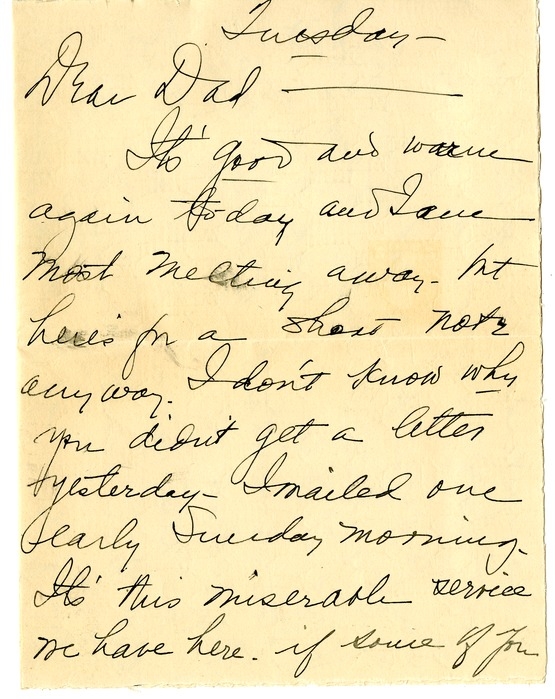 Tuesday -
Dear Dad
It's good and warm
again today and I am
most melting away - but
here's for a short note
anyway. I don't know why
you didn't get a letter
yesterday - I mailed one
early Sunday morning.
It's this miserable service
we have here. if some of you